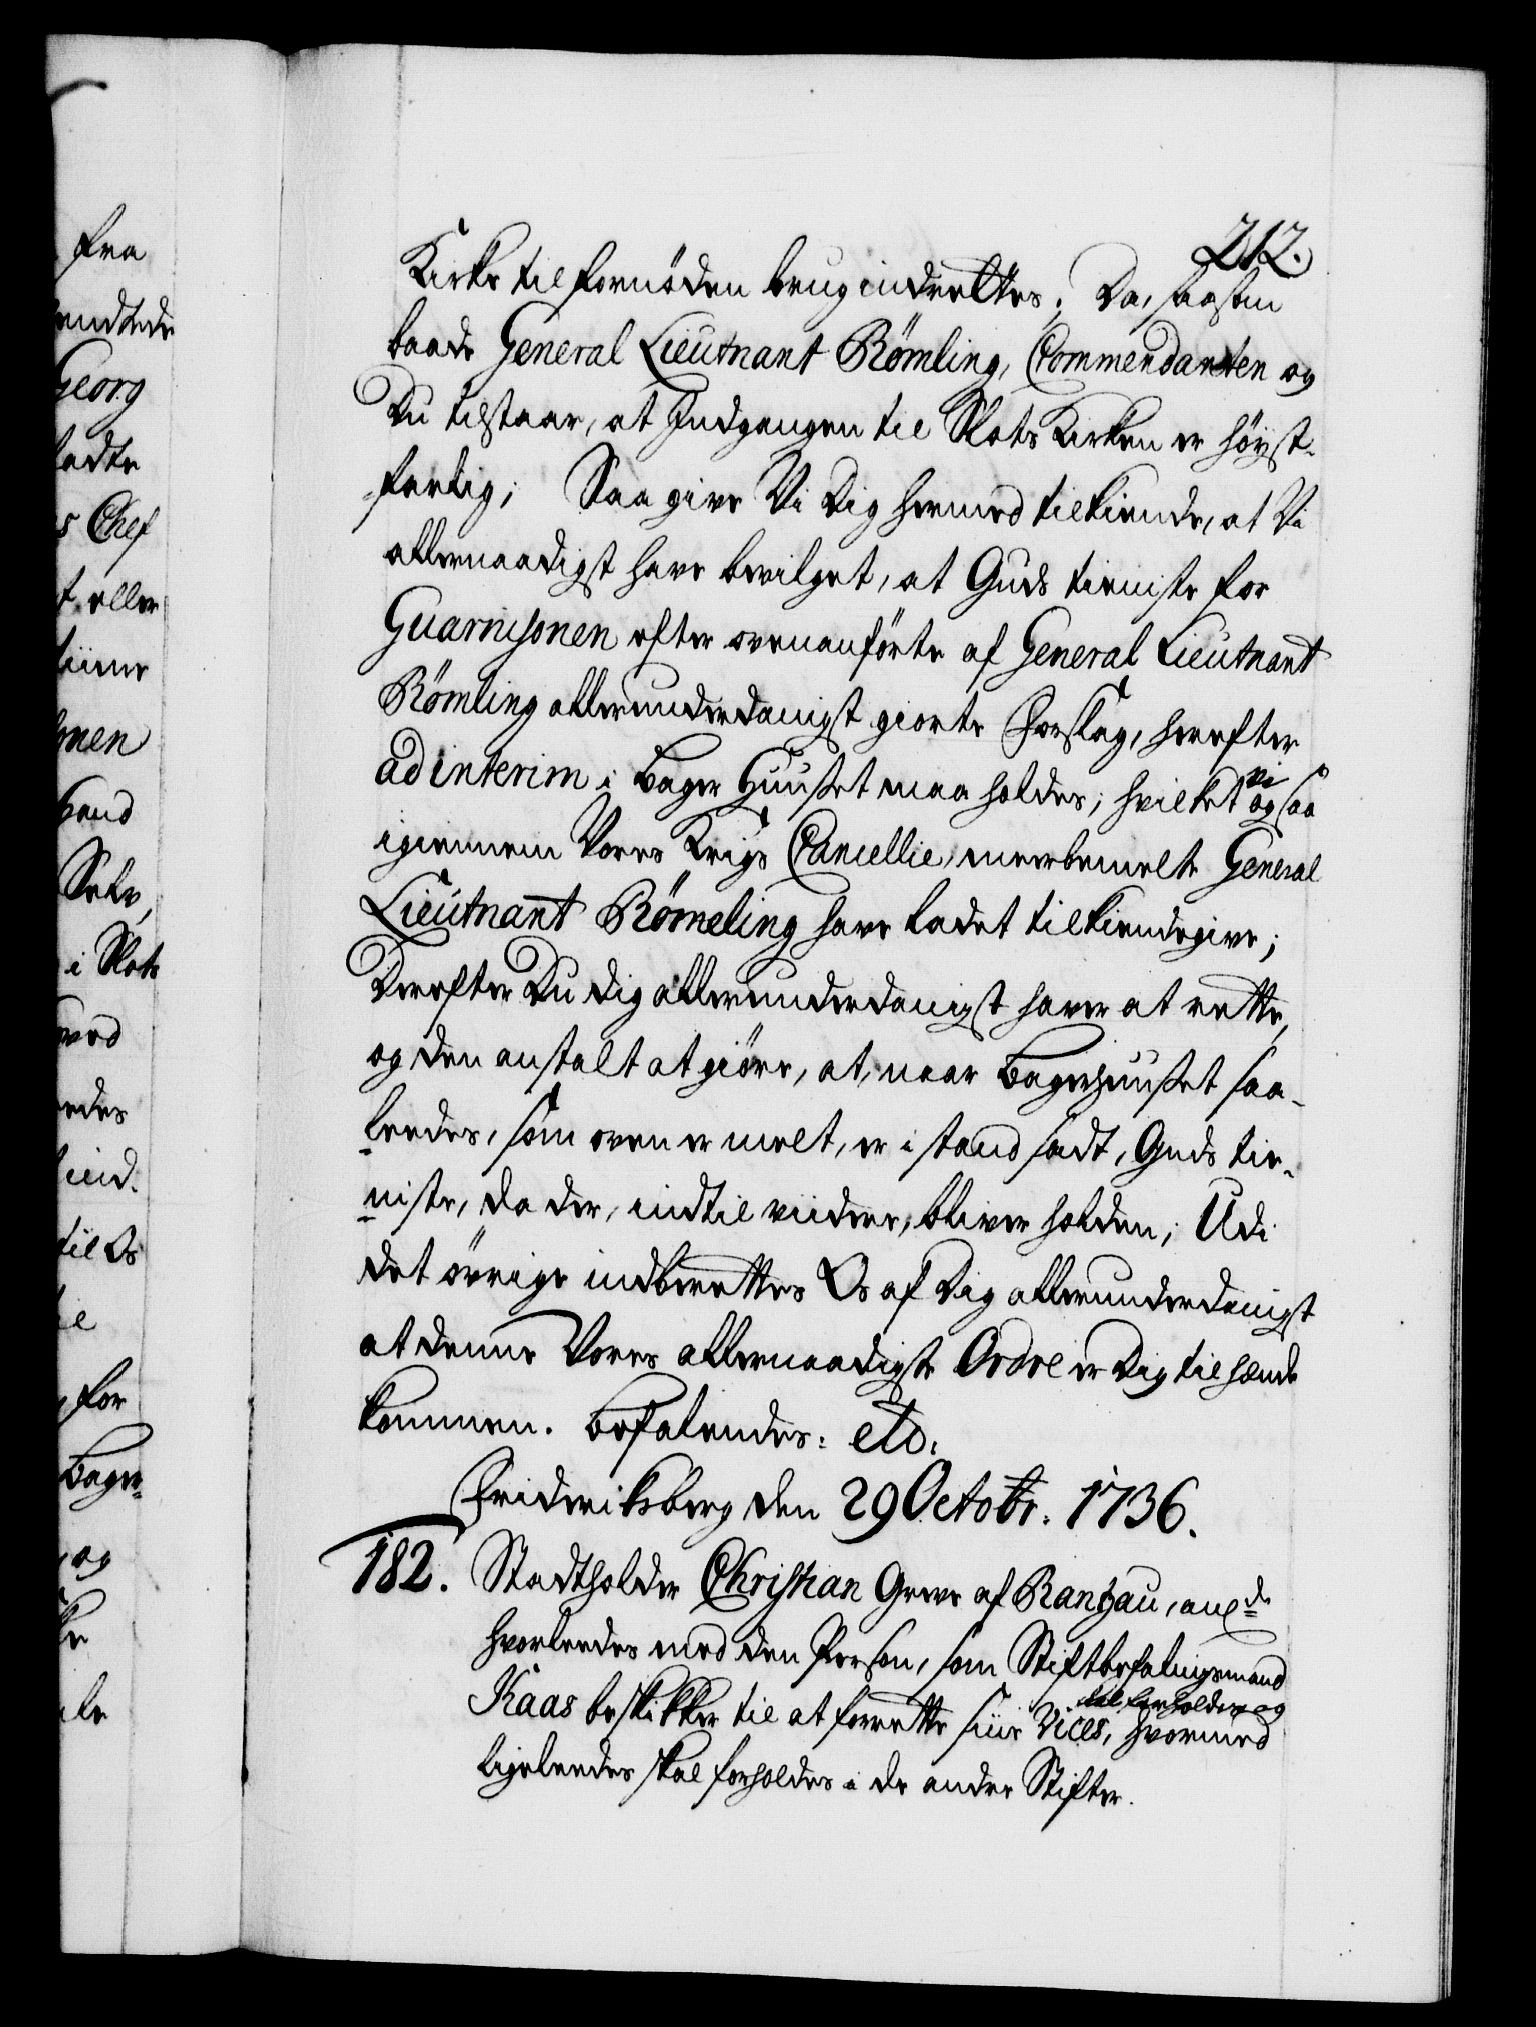 212.
Kirke til fornöden brug indrettes; Da, saasom
baade General Lieutnant Römling, Commendanten og
Du tilstaar, at Indgangen til Slots Kirken er höyst-
farlig; Saa give Vi Dig hermed tilkiende, at Vi
allernaadigst have bevilget, at Guds tieniste for
Guarnisonen efter ovenanförte af General Lieutnant
Römling allerunderdanigst giorte Forslag, herefter
ad interim i Bager Huuset maa holdes; hvilket vi og saa
igiennem Vores Krigs Cancellie, meerbemelte General
Lieutnant Römeling have ladet tilkiendegive;
Derefter Du dig allerunderdanigst haver at rette,
og den anstalt at giöre, at, naar Bagerhuuset saa-
leedes, som oven er melt, er i stand sadt, Guds tie-
niste, da der, indtil viidere, bliver holden; Udi
det övrige indberettes Os af Dig allerunderdanigst
at denne Vores allernaadigste Ordre er Dig til hænde
kommen. Befalendes: etc.
Frideriksberg den 29 Octobr. 1736.
182. Stadtholder Christian Greve af Rantzau, ang de
hvorleedes med den Person, som Stiftbefalingsmand
Kaas beskikker til at forrette siine Vices, skal forholdes og hvormed
ligeleedes skal forholdes i de andre Stifter.
fra
Georg
ladte
s Chef
t eller
tiene
onen
haand
Selv,
i Slots
ved
til Os
for
Bager-
og